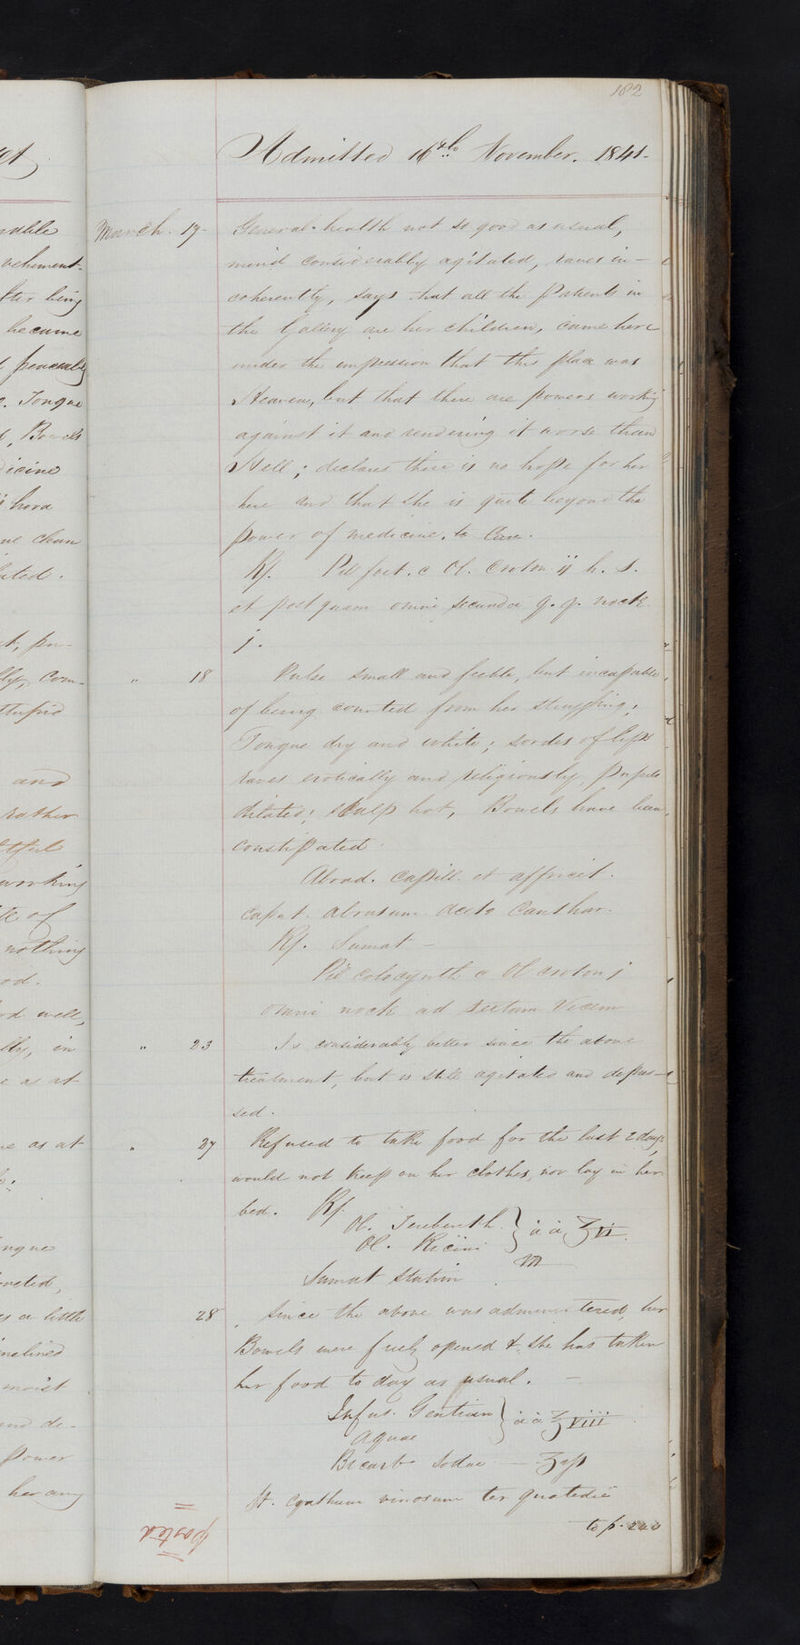 182
Admitted 16th November. 1841.
March. 17. General health not so good as usual,
mind considerably agitated, raves in-
coherently, says that all the Patients in
the Gallery are her children, came here
under the impression that this place was
Heaven, but that there are powers working
against it and rendering it worse than
Hell; declares there is no hope for her
here and that she is quite beyond the
power of medicine to Cure.
Rx. Pil fort. c Ol. Croton ij h. s.
et post omni secunda nocte
j.
" 18 Pulse small and feeble, but incapable
of being counted from her struggling;
Tongue dry and white; sordes of lips
raves erotically and religiously, pupils
dilated; scalp hot, Bowels have been
constipated.
Abrad. Capill. et
caput abrasum Canthar.
Rx. Sumat -
Pil colocynth c Ol croton j
omni nocte ad Vicem
" 23 Is considerably better since the above
treatment, but is still agitated and depres-
sed.
" 27 Refused to take food for the last 2 days,
would not keep on her clothes, nor lay in her
bed. Rx.
Ol. Terebinth } a a ʒvi.
Ol. Ricini
m
Sumat statim
28 Since the above was administered, her
Bowels were freely opened & she has taken
her food to day as usual. -
Infus. Gentian } a a ℥viii
Aquae
Bicarb Sodae - ʒss
St. cyathum vinosum ter quotidie
to p.
posted
vable
vehement-
fter being
became
. Tongue
, Bowels
dicine
ated.
Com-
and
rather
working
of
nothing
od.
d well,
lly, in
e as at
e as at
ngue
a little
nclined
moist
and de-
Power
her any